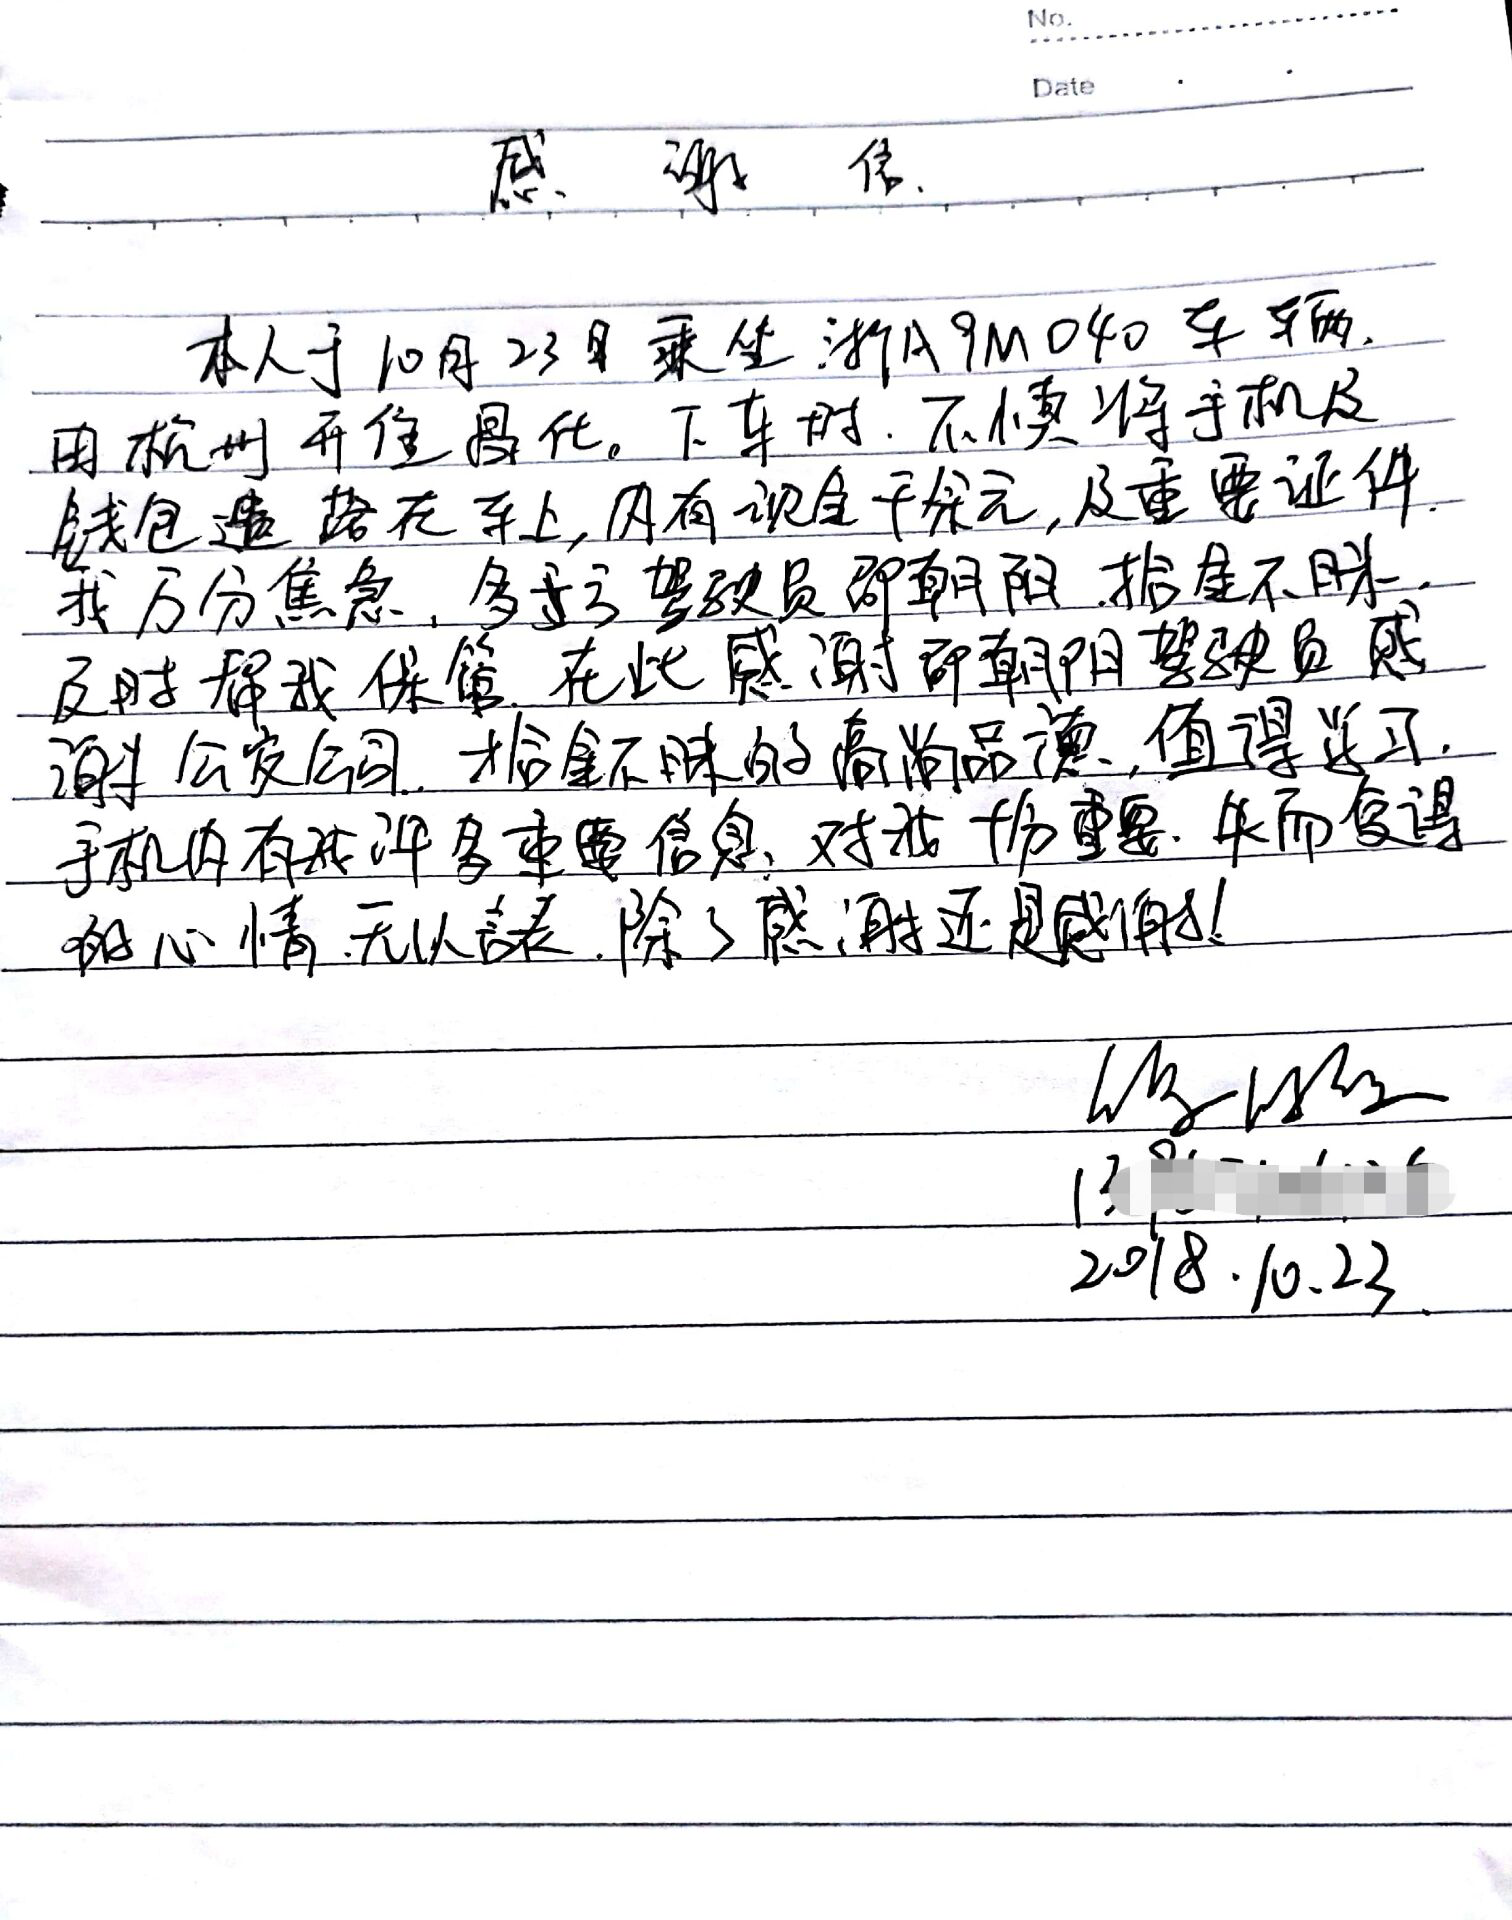 No.
Date
感谢信.
本人于10月23日乘坐浙A9M040车辆.
由杭州开住昌化。下车时.不慎将手机及
钱包遗落在车上,内有现金千余元,及重要证件.
我万分焦急.多亏驾驶员邵朝阳.拾金不昧.
及时帮我保管.在此感谢邵朝阳驾驶员感
谢公交公司.拾金不昧的高尚品德,值得学习.
手机内有我许多重要信息,对我十分重要.失而复得
的心情.无以言表.除了感谢还是感谢!
13
2018.10.23.